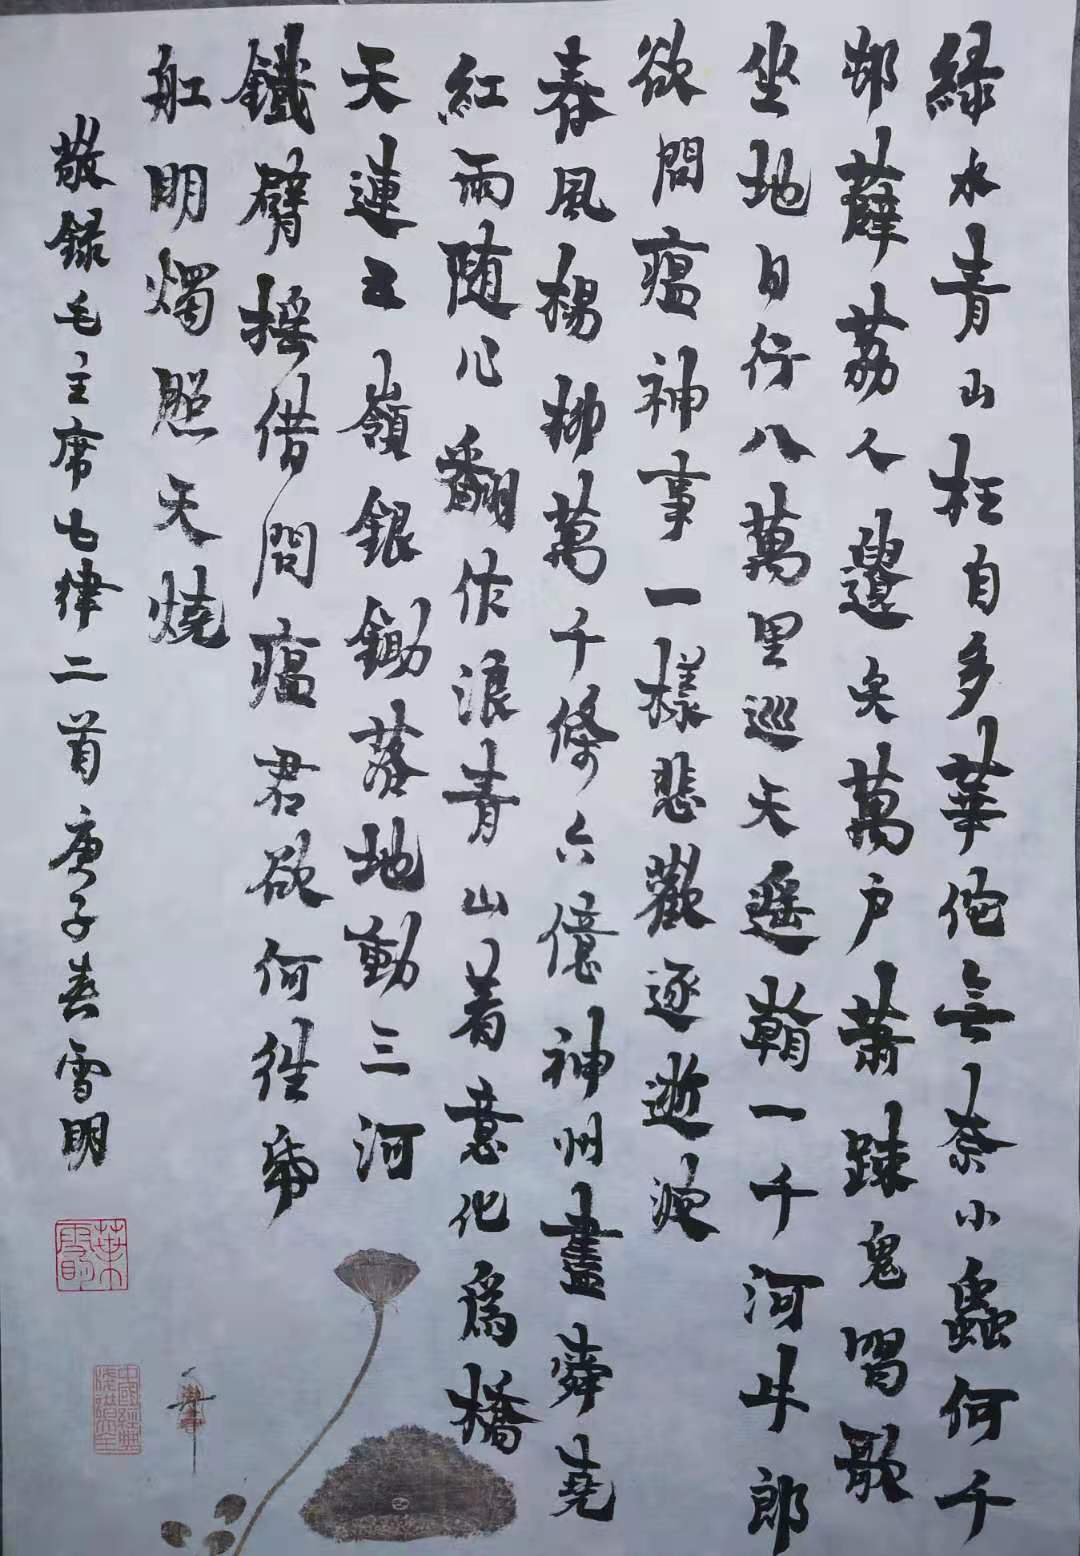 緑水青山枉自多華佗無奈小蟲何千
邨薜荔人遺矢萬户蕭疎鬼唱歌
坐地日行八萬里巡天遥看一千河牛郎
欲問瘟神事一樣悲歡逐逝波
春風楊柳萬千條六億神州盡舜堯
紅雨随心翻作浪青山着意化為橋
天連五嶺銀鋤落地動三河
鐵臂摇借問瘟君欲何往帋
舡明燭照天燒
敬録毛主席七律二首庚子春雪明
葉雪明